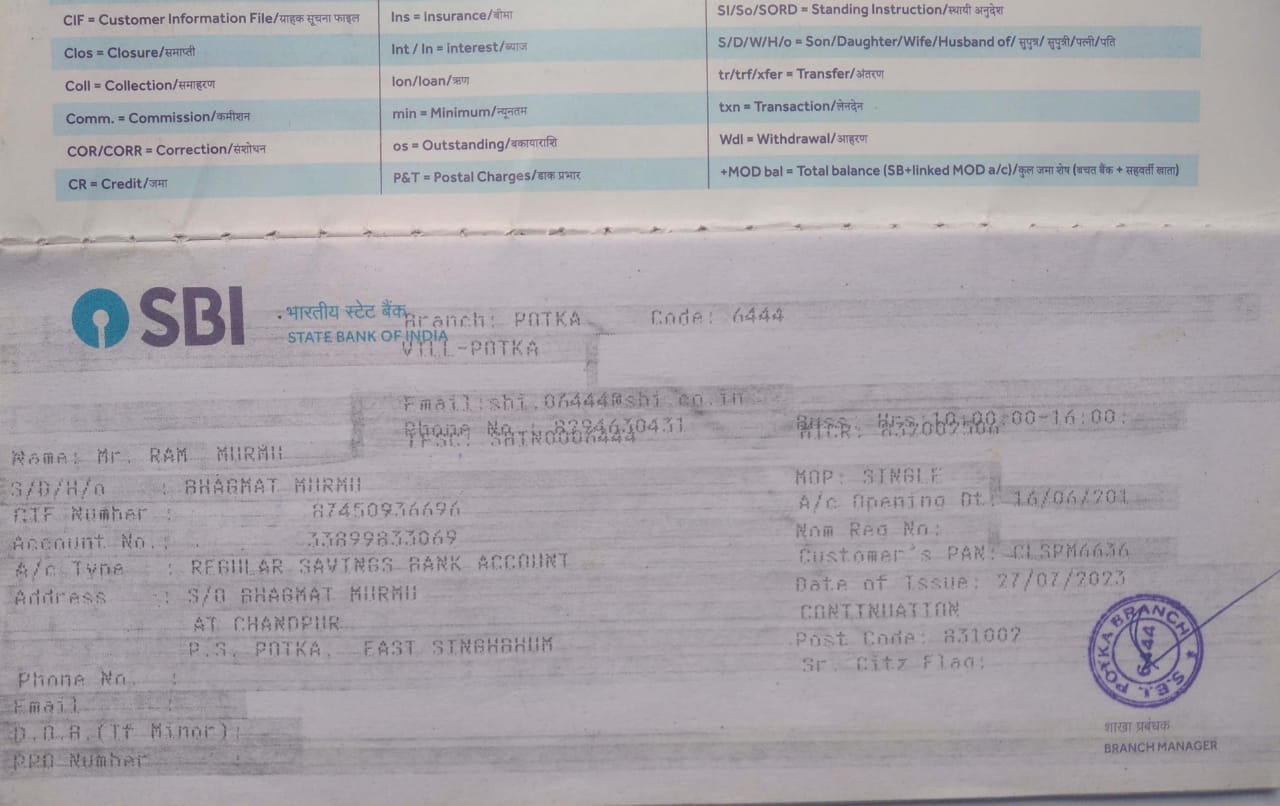 CIF = Customer Information File/ग्राहक सूचना फाइल
Clos = Closure/समाप्ती
Coll = Collection/समाहरण
Comm. = Commission/कमीशन
COR/CORR = Correction/संशोधन
CR = Credit/जमा
Ins = Insurance/बीमा
Int / In = interest/ब्याज
lon/loan/ऋण
min = Minimum/न्यूनतम
os = Outstanding/बकायाराशि
P&T = Postal Charges/डाक प्रभार
SI/So/SORD = Standing Instruction/स्थायी अनुदेश
S/D/W/H/o = Son/Daughter/Wife/Husband of/ सुपुत्र/ सुपुत्री/पत्नी/पति
tr/trf/xfer = Transfer/अंतरण
txn = Transaction/लेनदेन
Wdl = Withdrawal/आहरण
+MOD bal = Total balance (SB+linked MOD a/c)/कुल जमा शेष (बचत बैंक + सहवर्ती खाता)
SBI
भारतीय स्टेट बैंक
STATE BANK OF INDIA
Branch: POTKA Code: 6444
VILL-POTKA
Email:sbi.06444@sbi.co.in
Phone No.: 8294630431 Buss. Hrs:10:00:00-16:00:
IFSC: SBIN0006444 MICR:
Name: Mr. RAM MURMU
S/D/H/o : BHAGMAT MURMU
CIF Number : 87450936696
Account No.: 33899833069
A/c Type : REGULAR SAVINGS BANK ACCOUNT
Address : S/O BHAGMAT MURMU
AT CHANDPUR
P.S. POTKA, EAST SINGHBHUM
Phone No. :
Email :
D.O.B.(If Minor):
PPO Number :
MOP: SINGLE
A/c Opening Dt: 16/06/201
Nom Reg No:
Customer's PAN: CLSPM6636
Date of Issue: 27/07/2023
CONTINUATION
Post Code: 831002
Sr. Citz Flag:
S.B.I. POTKA BRANCH
6444
शाखा प्रबंधक
BRANCH MANAGER